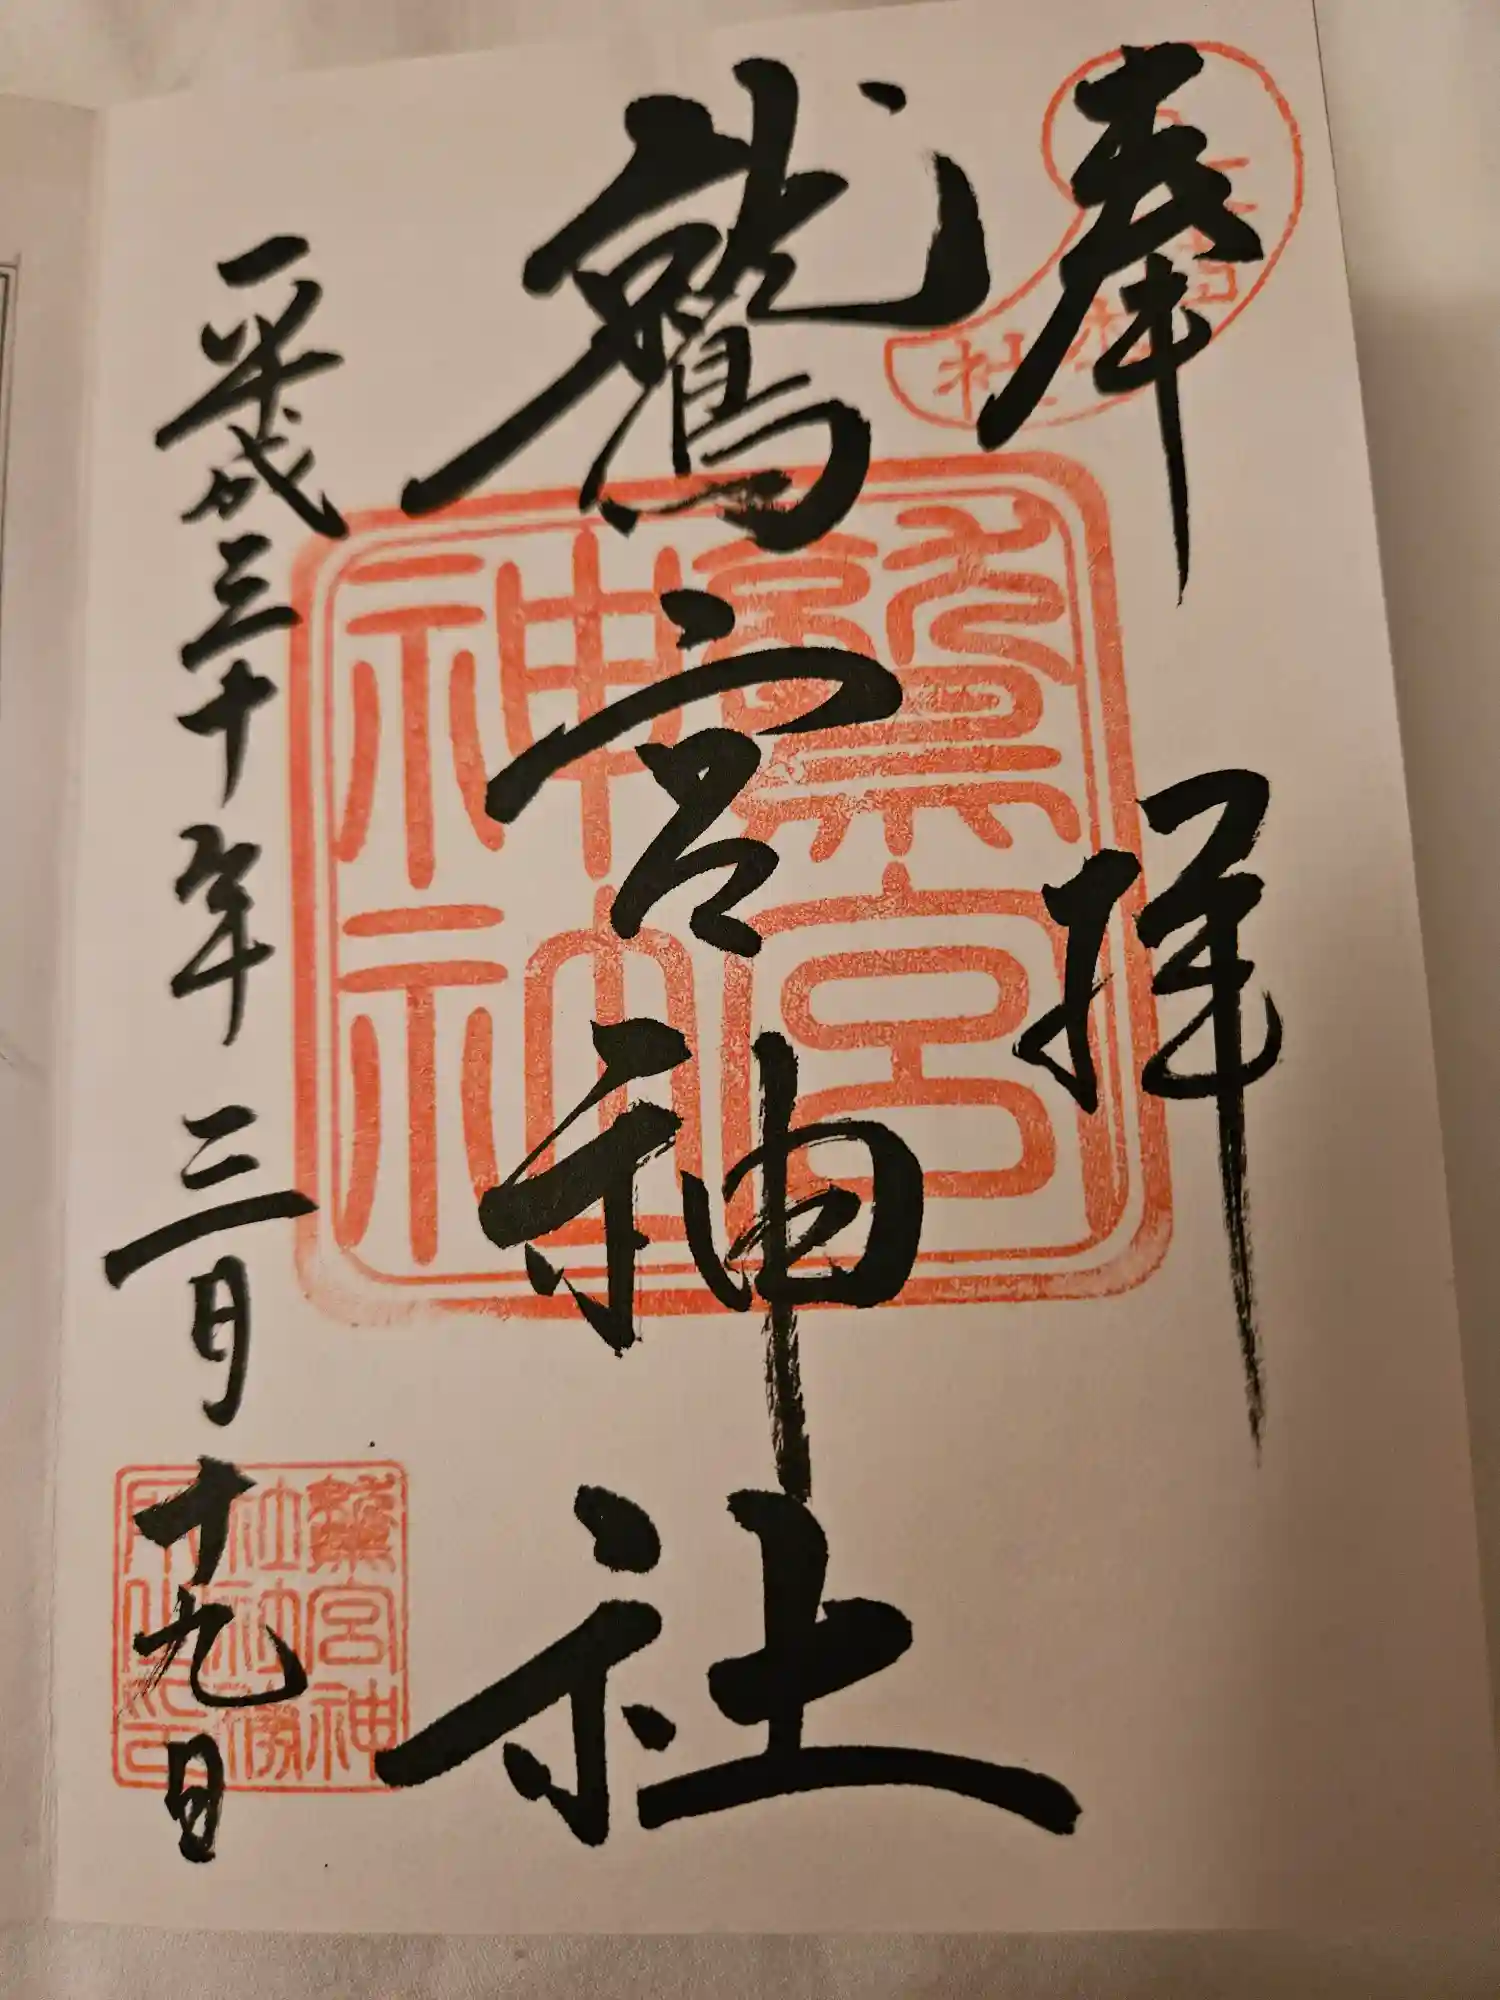 奉拝
鷲宮神社
平成三十年三月十九日
鷲宮神社
鷲宮神
社社務
所之印